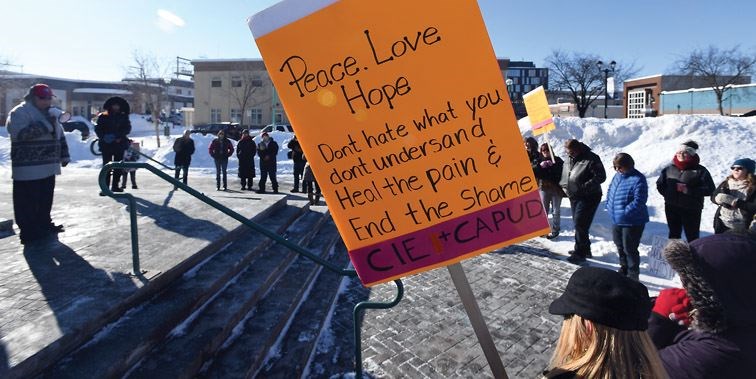 Peace. Love
Hope
Dont hate what you
dont undersand
Heal the pain &
End the Shame
CIE + CAPUD